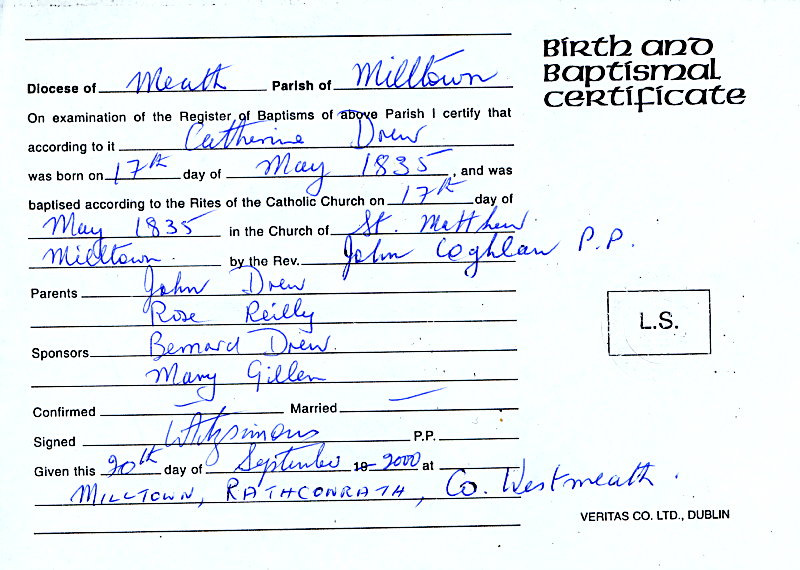 Birth and
Baptismal
Certificate
Diocese of Meath Parish of Milltown
On examination of the Register of Baptisms of above Parish I certify that
according to it Catherine Drew
was born on 17th day of May 1835, and was
baptised according to the Rites of the Catholic Church on 17th day of
May 1835 in the Church of St. Matthew
Milltown by the Rev. John Coghlan P.P.
Parents John Drew
Rose Reilly
L.S.
Sponsors Bernard Drew
Mary Gillen
Confirmed — Married —
Signed Fitzsimons P.P.
Given this 20th day of September 19 2000 at
MILLTOWN, RATHCONRATH, Co. Westmeath.
VERITAS CO. LTD., DUBLIN